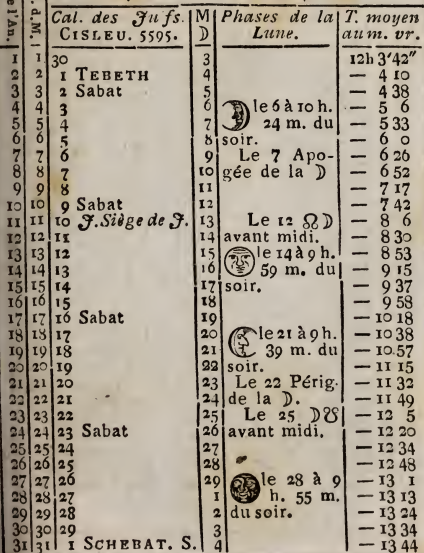 de l'An. d. M. Cal. des Jufs. CISLEU. 5595. M ☽ Phases de la Lune. T. moyen au m. vr.
1 1 30 3 12h 3'42"
2 2 1 TEBETH 4 — 4 10
3 3 2 Sabat 5 — 4 38
4 4 3 6 le 6 à 10 h. — 5 6
5 5 4 7 24 m. du — 5 33
6 6 5 8 soir. — 6 0
7 7 6 9 Le 7 Apo- — 6 26
8 8 7 10 gée de la ☽ — 6 52
9 9 8 11 — 7 17
10 10 9 Sabat 12 — 7 42
11 11 10 J. Siège de J. 13 Le 12 ☊☽ — 8 6
12 12 11 14 avant midi. — 8 30
13 13 12 15 le 14 à 9 h. — 8 53
14 14 13 16 59 m. du — 9 15
15 15 14 17 soir. — 9 37
16 16 15 18 — 9 58
17 17 16 Sabat 19 — 10 18
18 18 17 20 le 21 à 9 h. — 10 38
19 19 18 21 39 m. du — 10.57
20 20 19 22 soir. — 11 15
21 21 20 23 Le 22 Périg. — 11 32
22 22 21 24 de la ☽. — 11 49
23 23 22 25 Le 25 ☽☋ — 12 5
24 24 23 Sabat 26 avant midi. — 12 20
25 25 24 27 — 12 34
26 26 25 28 — 12 48
27 27 26 29 le 28 à 9 — 13 1
28 28 27 1 h. 55 m. — 13 13
29 29 28 2 du soir. — 13 24
30 30 29 3 — 13 34
31 31 1 SCHEBAT. S. 4 — 13 44